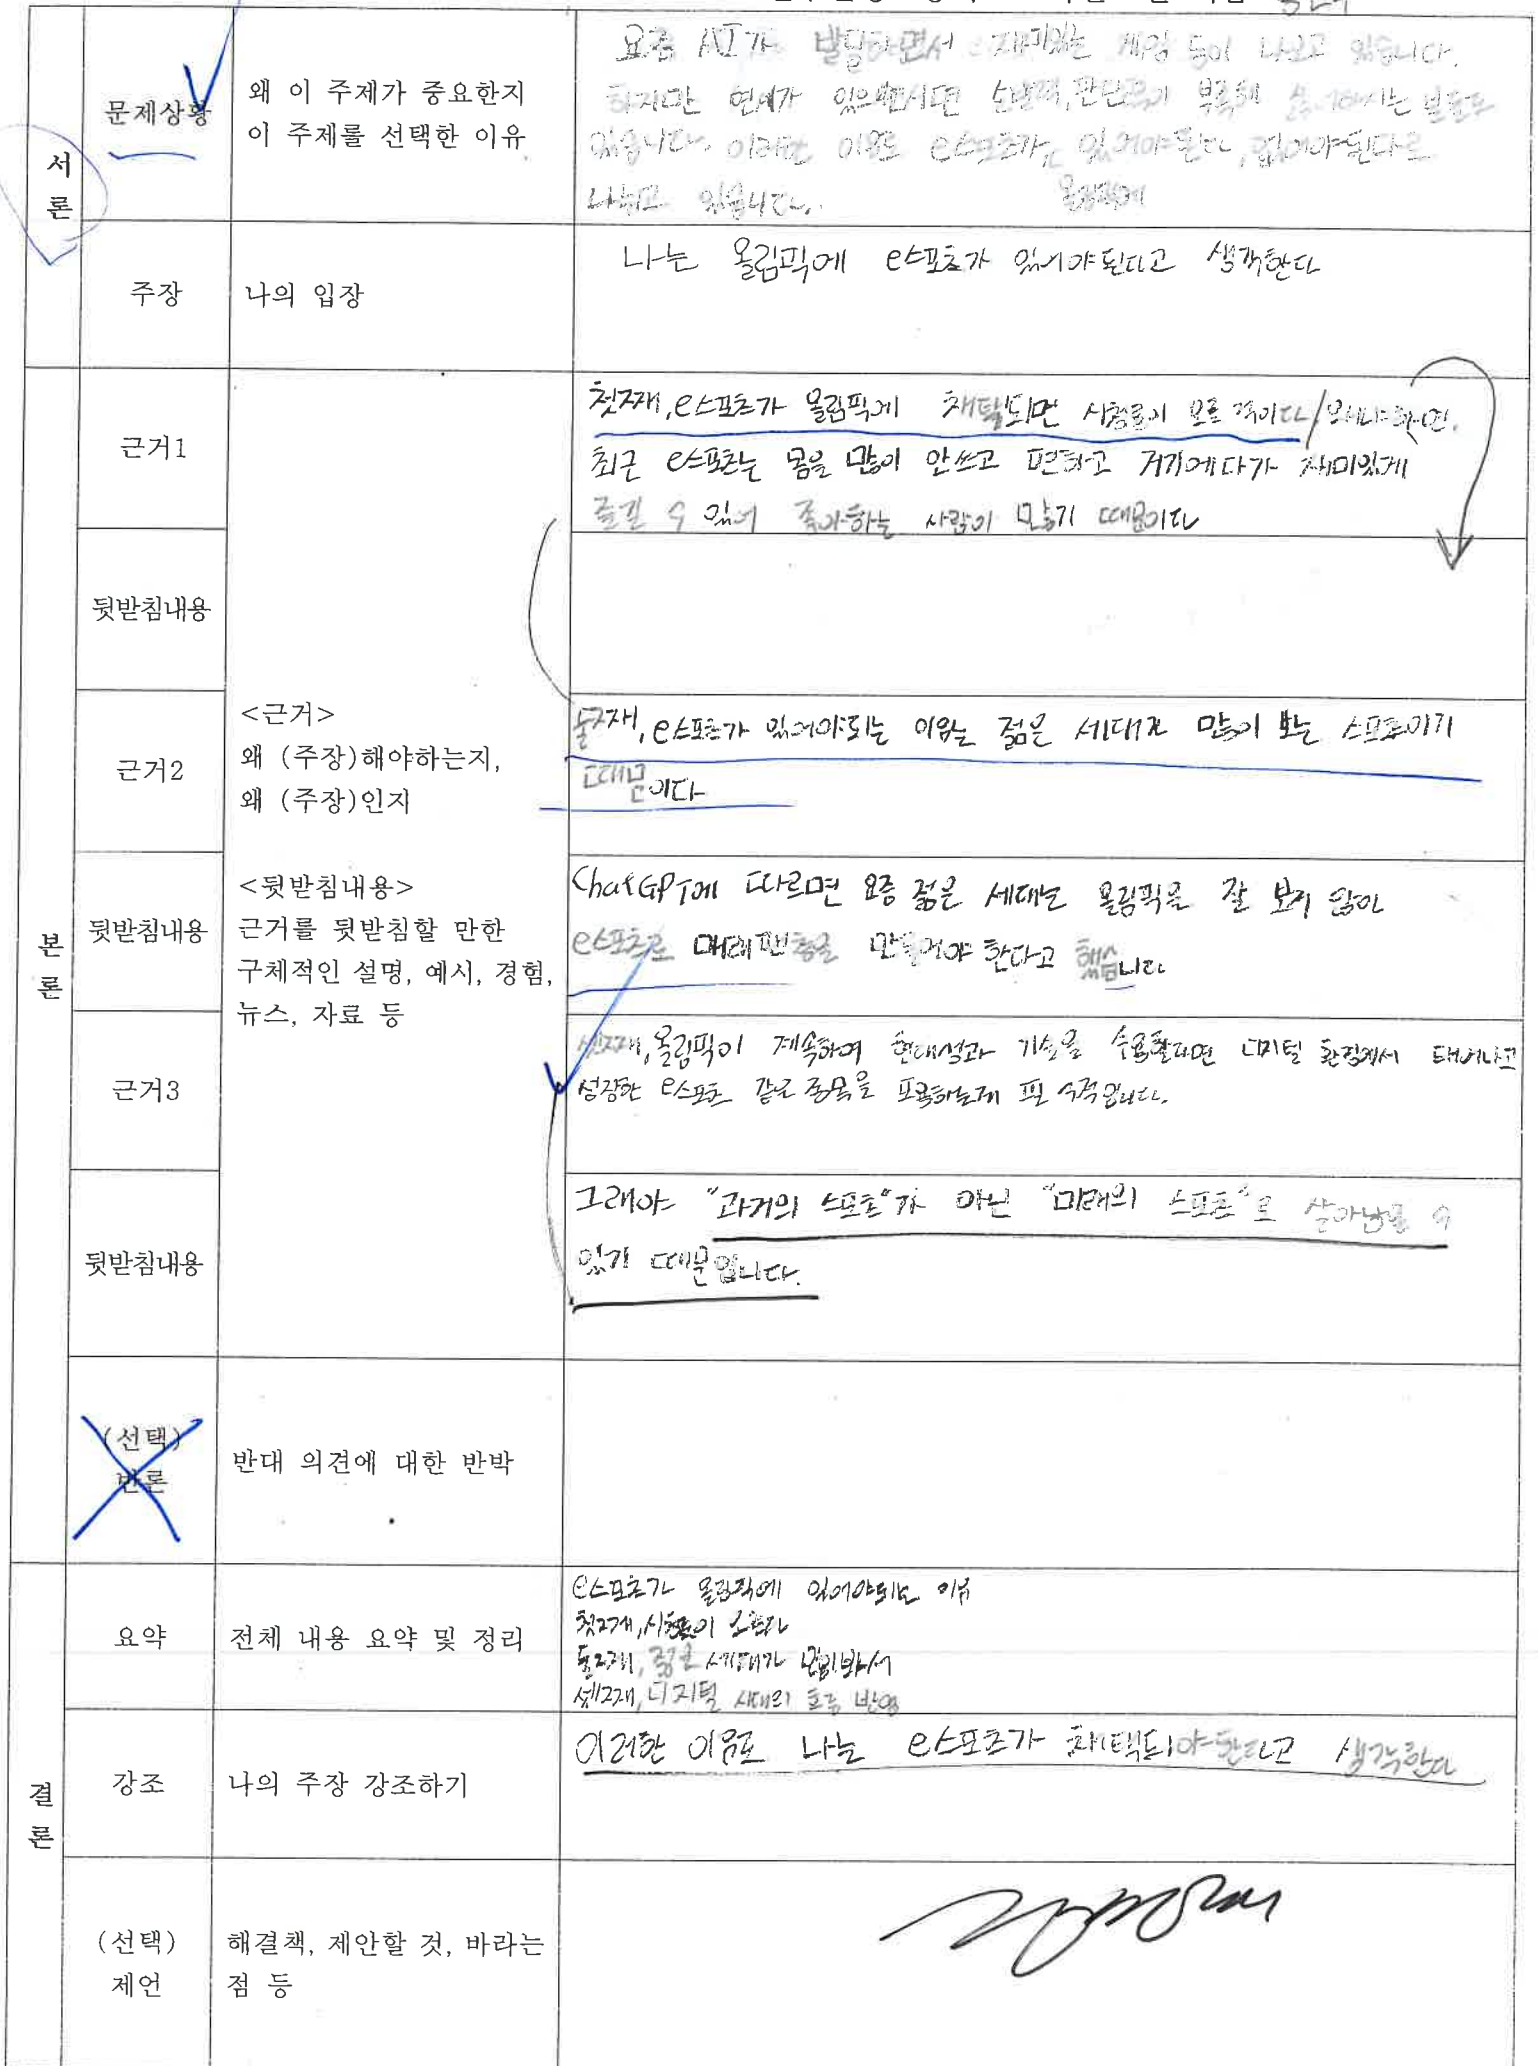 서론
문제상황
왜 이 주제가 중요한지
이 주제를 선택한 이유
요즘 AI가 발달하면서 재미있는 게임 등이 나오고 있습니다.
하지만 연세가 있으신 순발력, 판단력이 부족해 분들도
있습니다. 이러한 이유로 e스포츠가 있어야된다, 없어야된다로
나뉘고 있습니다.
올림픽에
주장
나의 입장
나는 올림픽에 e스포츠가 있어야된다고 생각한다
본론
근거1
첫째, e스포츠가 올림픽에 채택되면 시청률이 오를 것이다/왜냐하면.
최근 e스포츠는 몸을 많이 안쓰고 편하고 거기에다가 재미있게
즐길 수 있어 좋아하는 사람이 많기 때문이다
뒷받침내용
근거2
<근거>
왜 (주장)해야하는지,
왜 (주장)인지
둘째, e스포츠가 있어야되는 이유는 젊은 세대가 많이 보는 스포츠이기
때문이다
뒷받침내용
<뒷받침내용>
근거를 뒷받침할 만한
구체적인 설명, 예시, 경험,
뉴스, 자료 등
ChatGPT에 따르면 요즘 젊은 세대는 올림픽을 잘 보지 않아
e스포츠로 미래팬층을 만들어야 한다고 했습니다
근거3
셋째, 올림픽이 계속하여 현대성과 기술을 수용한다면 디지털 환경에서 태어나고
성장한 e스포츠 같은 종목을 포용하는게 필수적입니다.
뒷받침내용
그래야 "과거의 스포츠"가 아닌 "미래의 스포츠"로 살아남을 수
있기 때문입니다.
(선택)
반론
반대 의견에 대한 반박
결론
요약
전체 내용 요약 및 정리
e스포츠가 올림픽에 있어야되는 이유
첫째, 시청률이 오른다
둘째, 젊은 세대가 많이봐서
셋째, 디지털 시대의 흐름 반영
강조
나의 주장 강조하기
이러한 이유로 나는 e스포츠가 채택되야한다고 생각한다
(선택)
제언
해결책, 제안할 것, 바라는
점 등